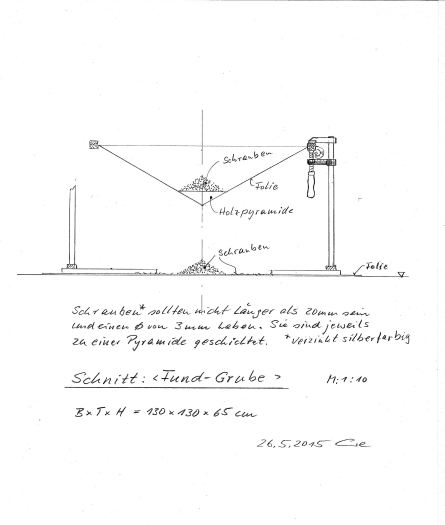 Schrauben
Folie
Holzpyramide
Schrauben
Folie
Schrauben* sollten nicht länger als 20mm sein
und einen Ø von 3mm haben. Sie sind jeweils
zu einer Pyramide geschichtet. *verzinkt silberfarbig
Schnitt: <Fund-Grube> M:1:10
B x T x H = 130 x 130 x 65 cm
26.5.2015